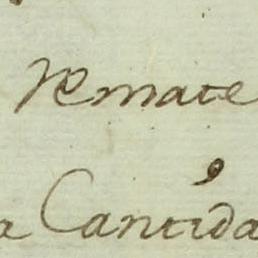 remate
a Cantida